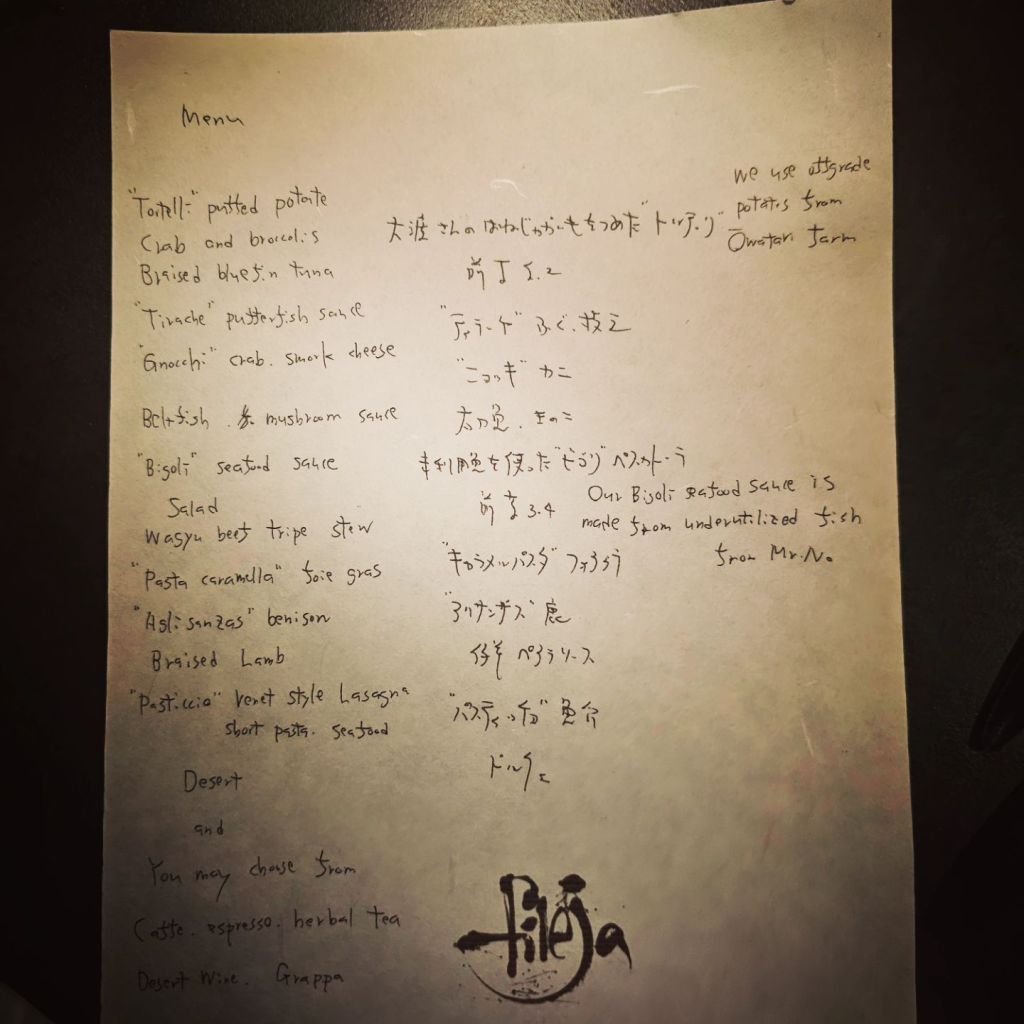 Menu
"Tortelli" putted potate
Crab and broccolis
Braised bluefin tuna
"Tirache" putterfish sauce
"Gnocchi" crab. smork cheese
Beltfish . mushroom sauce
"Bigoli" seafood sauce
Salad
Wagyu beef tripe stew
"Pasta caramella" foie gras
"Aglisanzas" benison
Braised Lamb
"Pasticcio" Venet style Lasagna
short pasta. seafood
Desert
and
You may choose from
Caffe. espresso. herbal tea
Desert Wine. Grappa
大渡さんのはねじゃがいもをつめた"トルテッリ"
前丁 1.2
ふぐ、
"ニョッキ" カニ
太刀魚、きのこ
未利用魚を使った"ビゴリ" ペスカトーラ
前菜 3.4
"キャラメルパスタ" フォアグラ
"アリサンザス" 鹿
仔羊 ソース
"パスティッチョ" 魚介
ドルチェ
We use offgrade
potatos from
Ōwatari farm
Our Bigoli seafood sauce is
made from underutilized fish
from Mr.N.
fileja